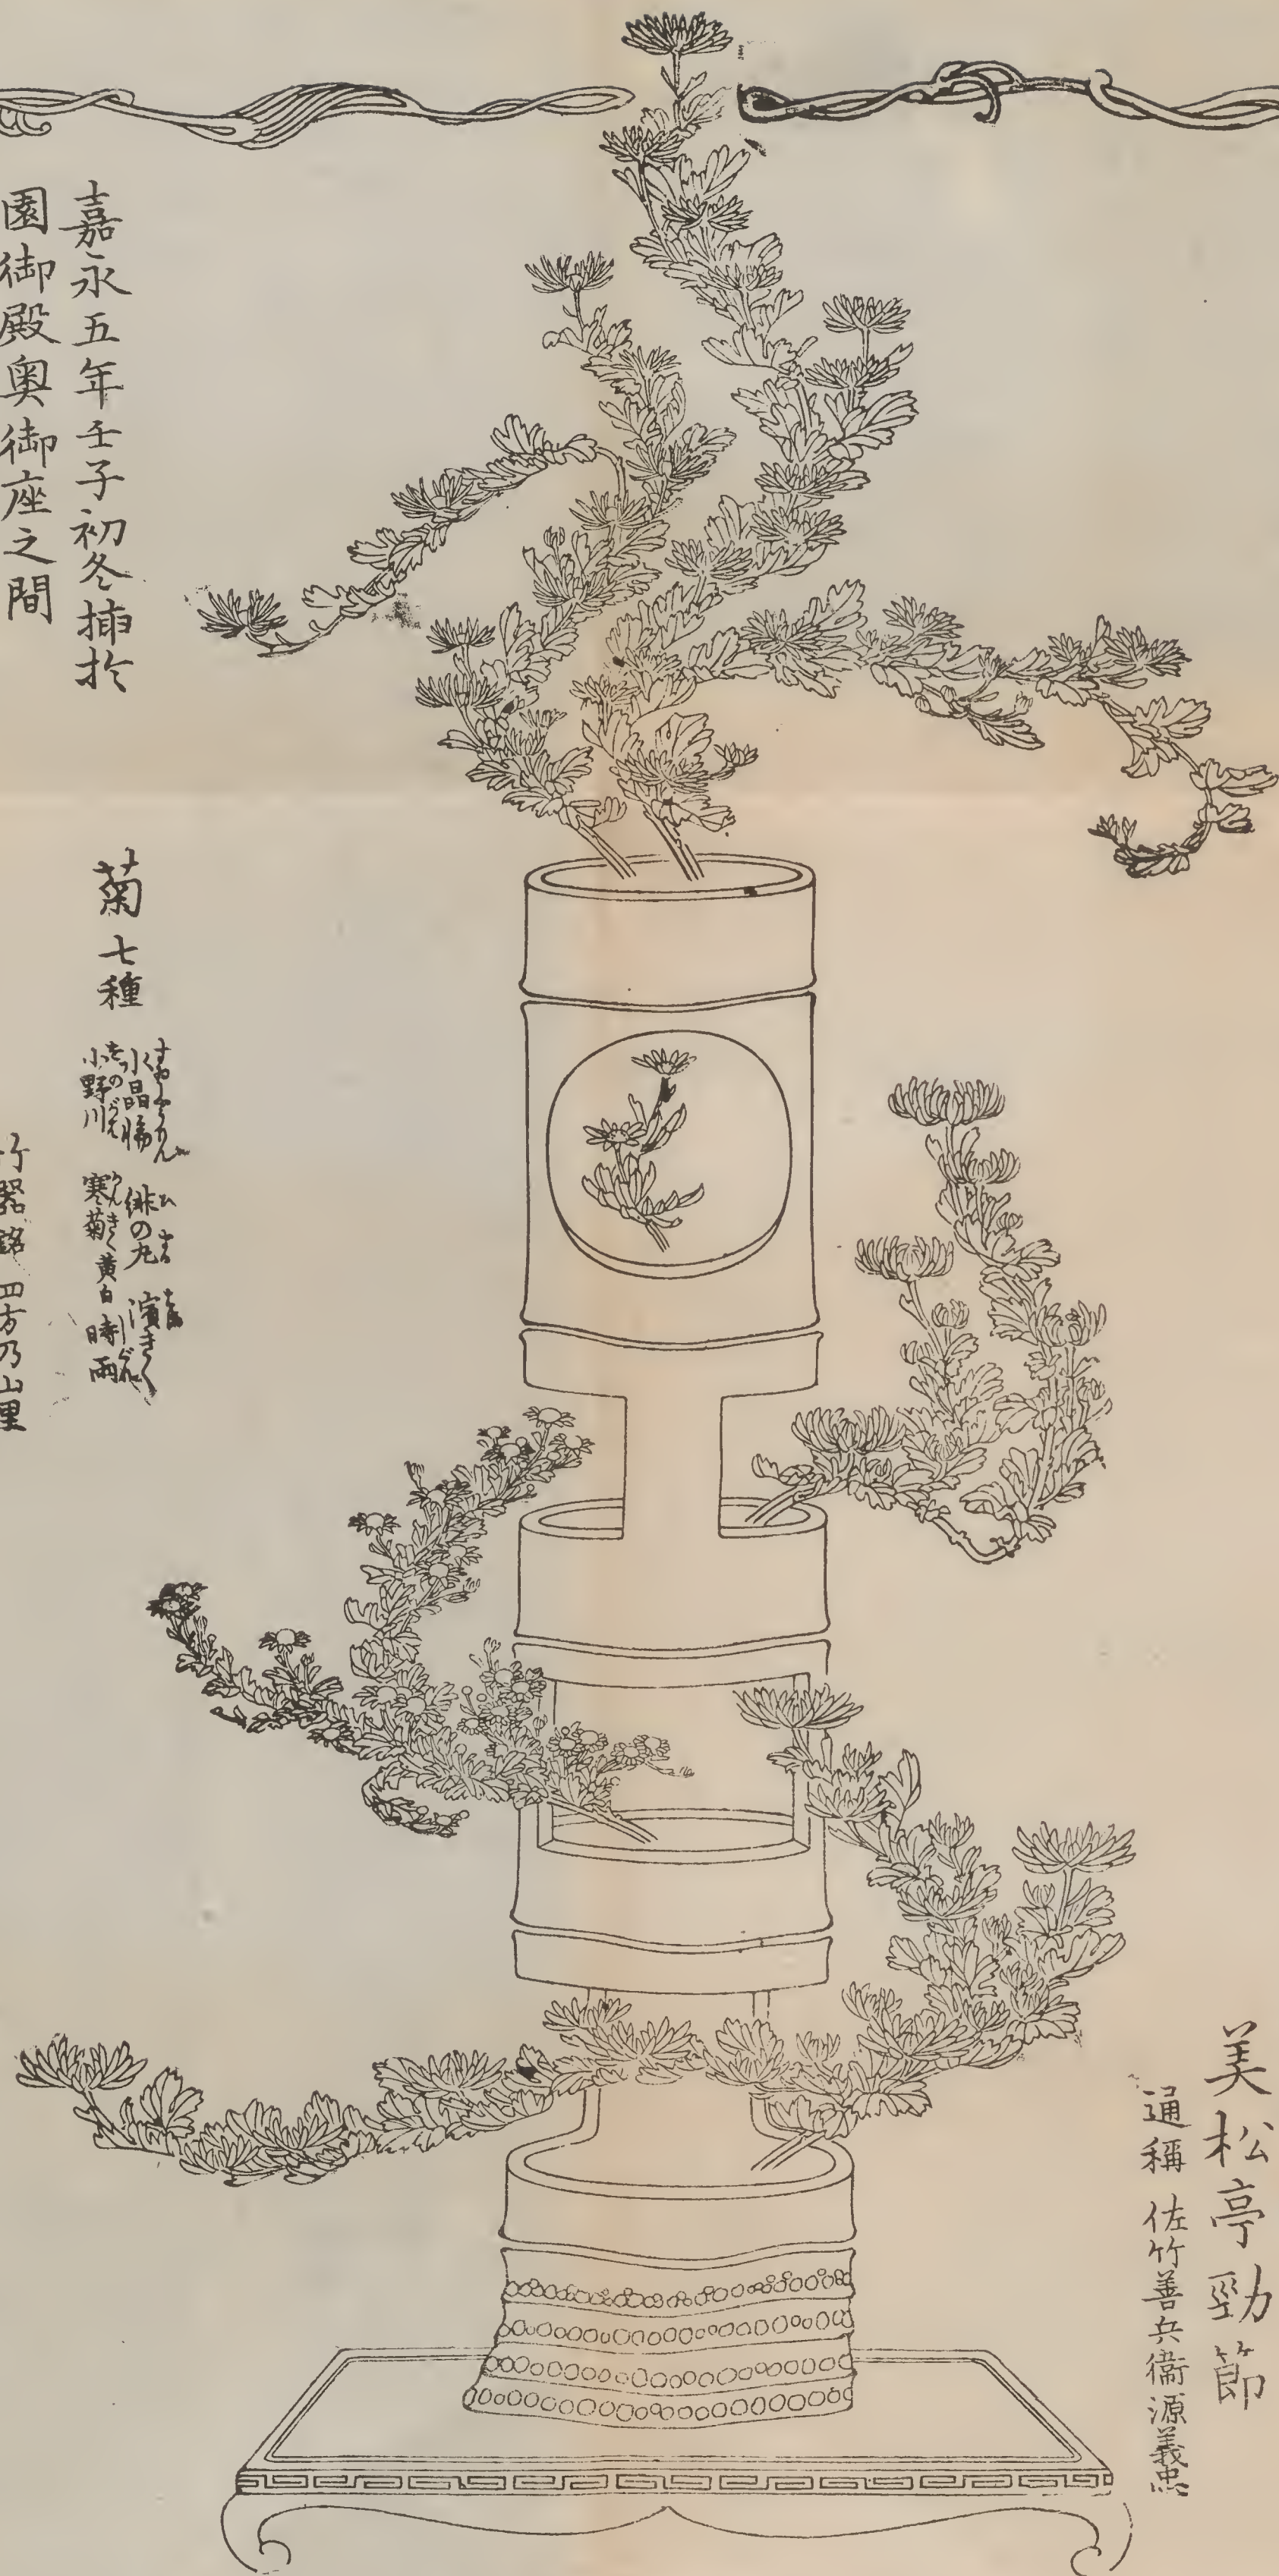 美松亭勁節
通稱 佐竹善兵衞源義忠
嘉永五年壬子初冬挿於
園御殿奥御座之間
菊七種
水晶 緋の丸 濱きく
小野川 寒菊 黄白 時雨
竹器銘 四方乃山里